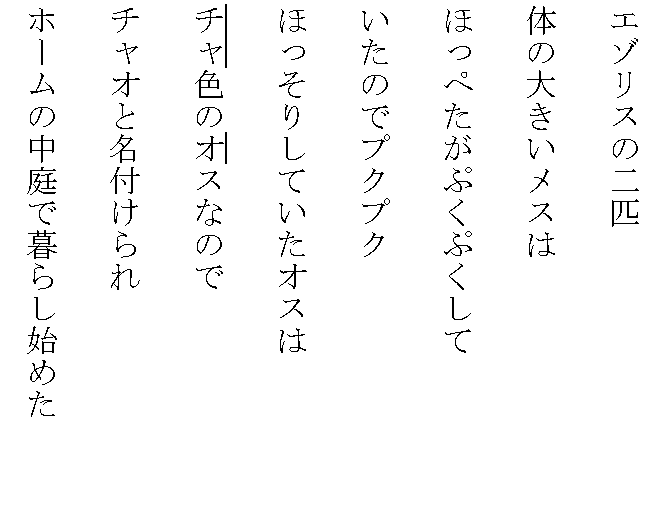 エゾリスの二匹
体の大きいメスは
ほっぺたがぷくぷくして
いたのでプクプク
ほっそりしていたオスは
チャ色のオスなので
チャオと名付けられ
ホームの中庭で暮らし始めた